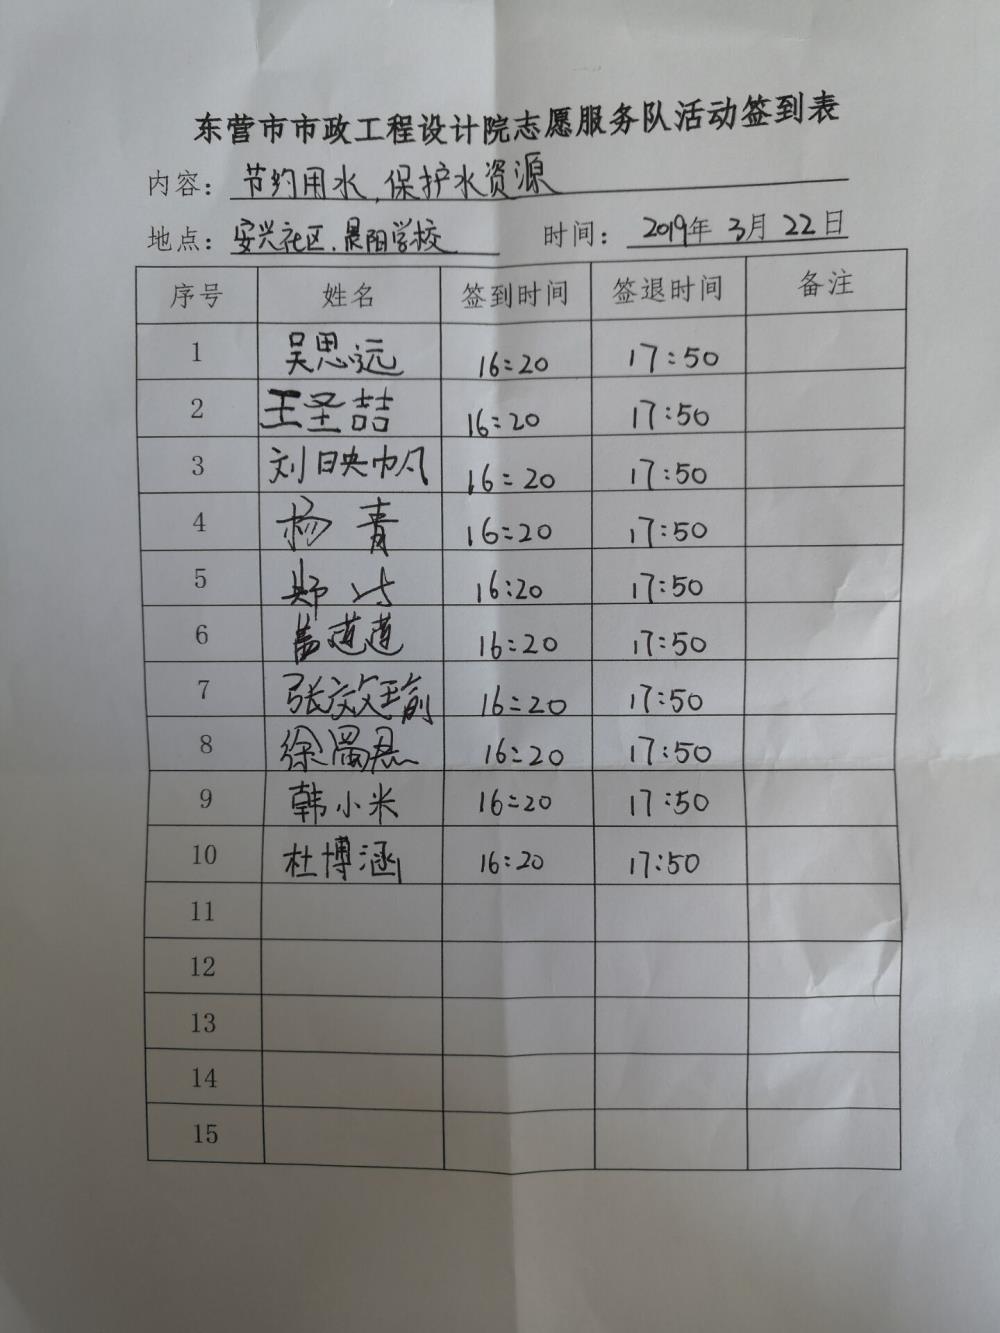 东营市市政工程设计院志愿服务队活动签到表
内容: 节约用水,保护水资源
地点: 安兴社区、晨阳学校 时间: 2019年 3月 22日
序号 姓名 签到时间 签退时间 备注
1 吴思远 16:20 17:50
2 王圣喆 16:20 17:50
3 刘映帆 16:20 17:50
4 杨青 16:20 17:50
5 郑 16:20 17:50
6 莲莲 16:20 17:50
7 张效瑜 16:20 17:50
8 徐 16:20 17:50
9 韩小米 16:20 17:50
10 杜博涵 16:20 17:50
11
12
13
14
15